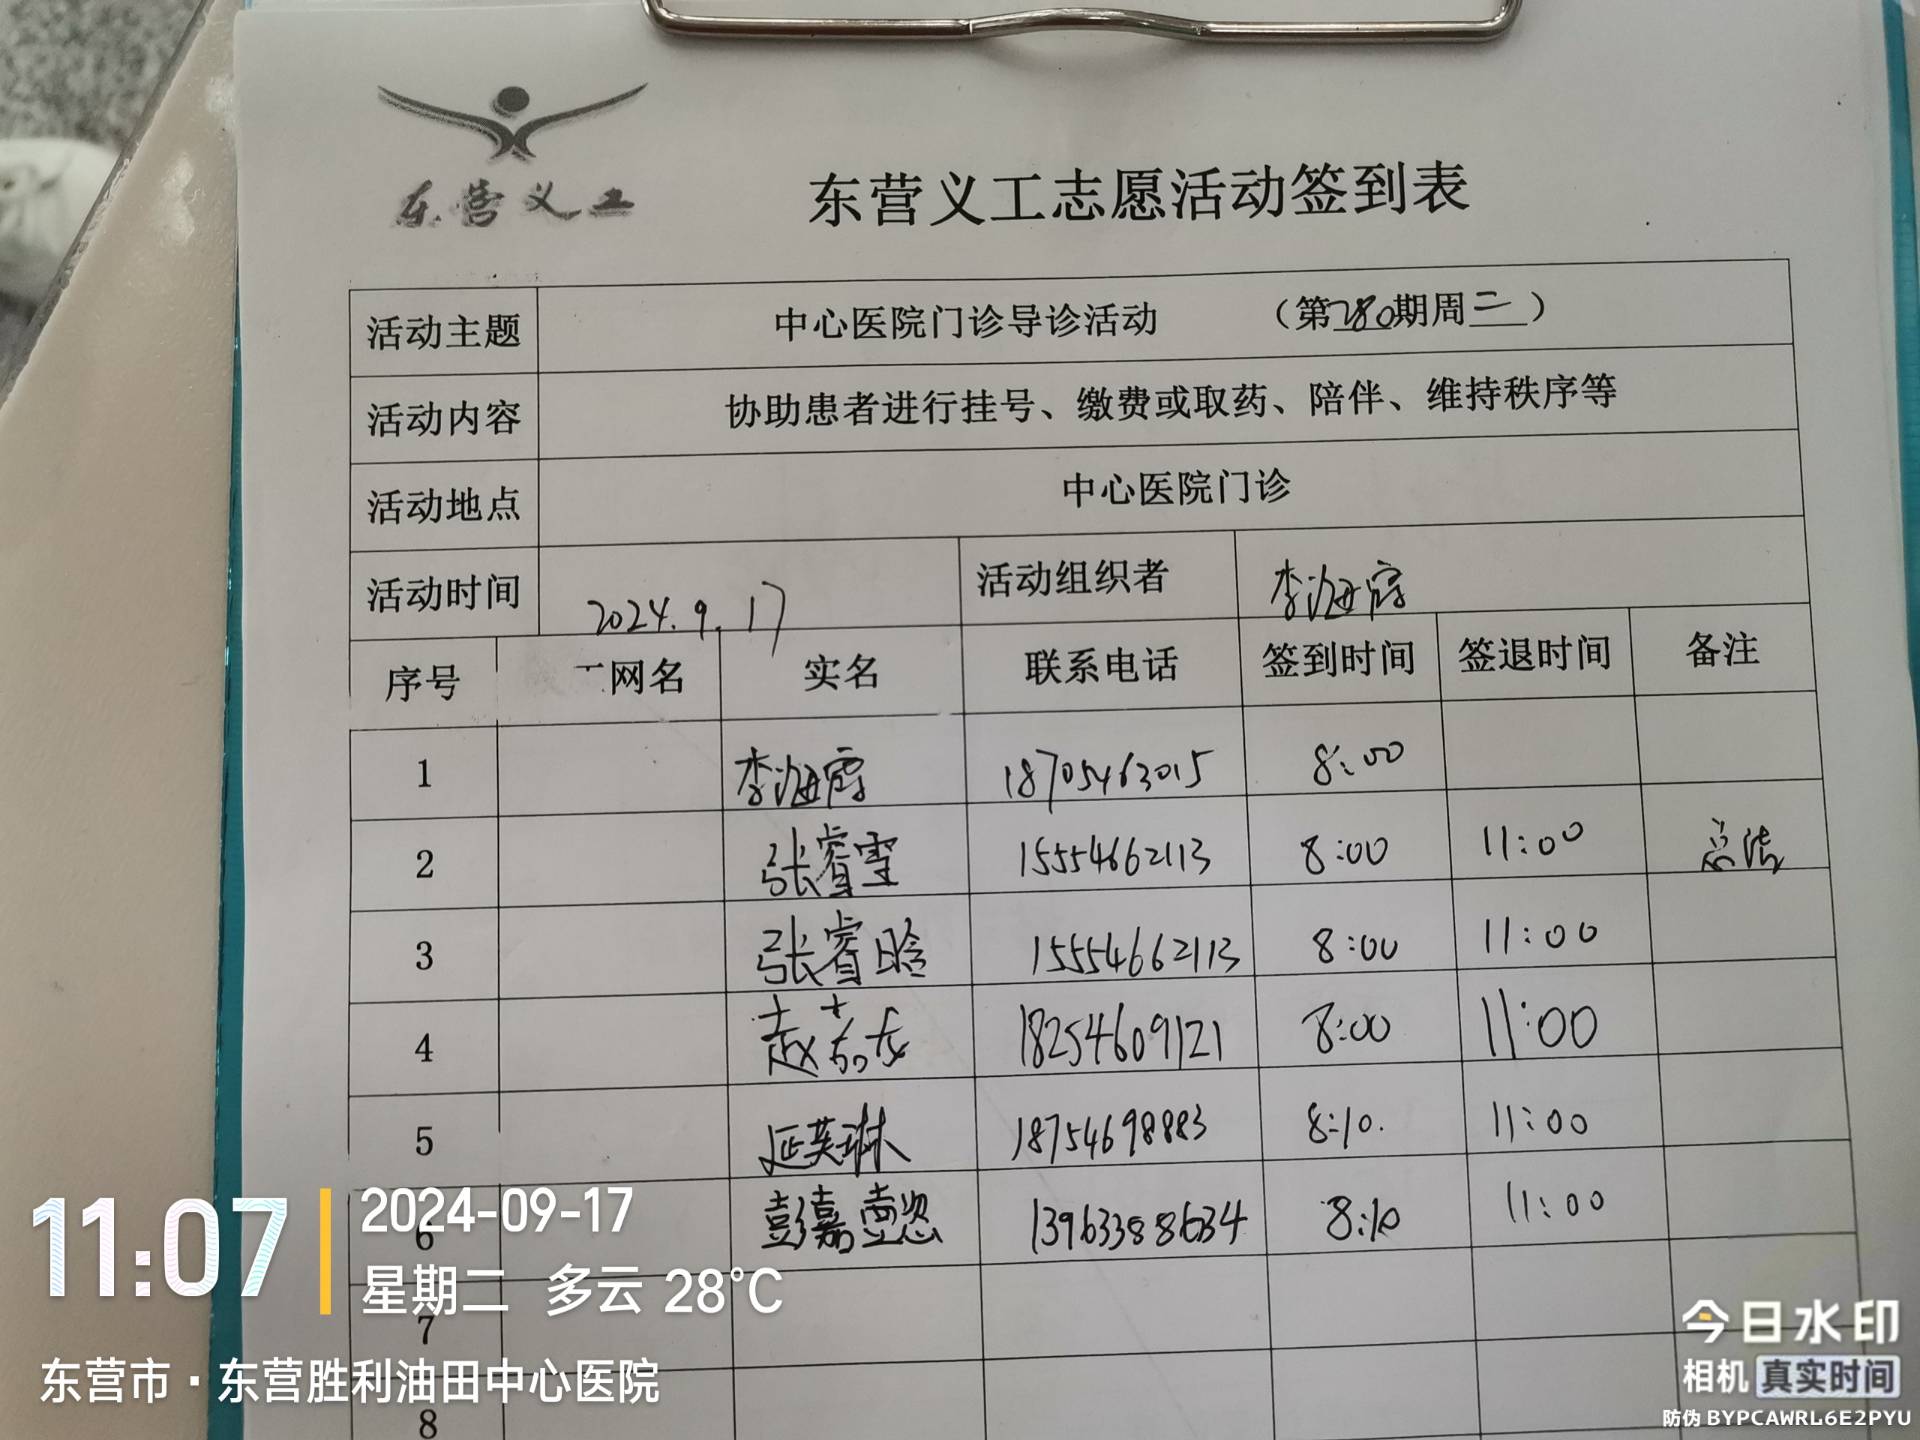 东营义工
东营义工志愿活动签到表
活动主题 中心医院门诊导诊活动 （第280期周二）
活动内容 协助患者进行挂号、缴费或取药、陪伴、维持秩序等
活动地点 中心医院门诊
活动时间 2024.9.17 活动组织者 李海霞
序号 网名 实名 联系电话 签到时间 签退时间 备注
1 李海霞 18705463015 8:00
2 张睿雯 15554662113 8:00 11:00 总结
3 张睿晗 15554662113 8:00 11:00
4 赵 18254609121 8:00 11:00
5 延英琳 18754698883 8:10. 11:00
6 彭嘉壹 13963388634 8:10 11:00
7
8
11:07
2024-09-17
星期二 多云 28℃
东营市·东营胜利油田中心医院
今日水印
相机 真实时间
防伪 BYPCAWRL6E2PYU